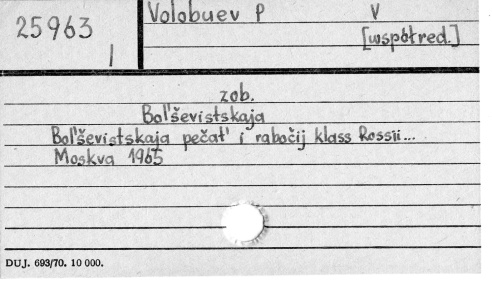 25963
I
Volobuev P V
[współred.]
zob.
Bol'ševistskaja
Bol'ševistskaja pečat' i rabočij klass Rossii...
Moskva 1965
DUJ. 693/70. 10 000.